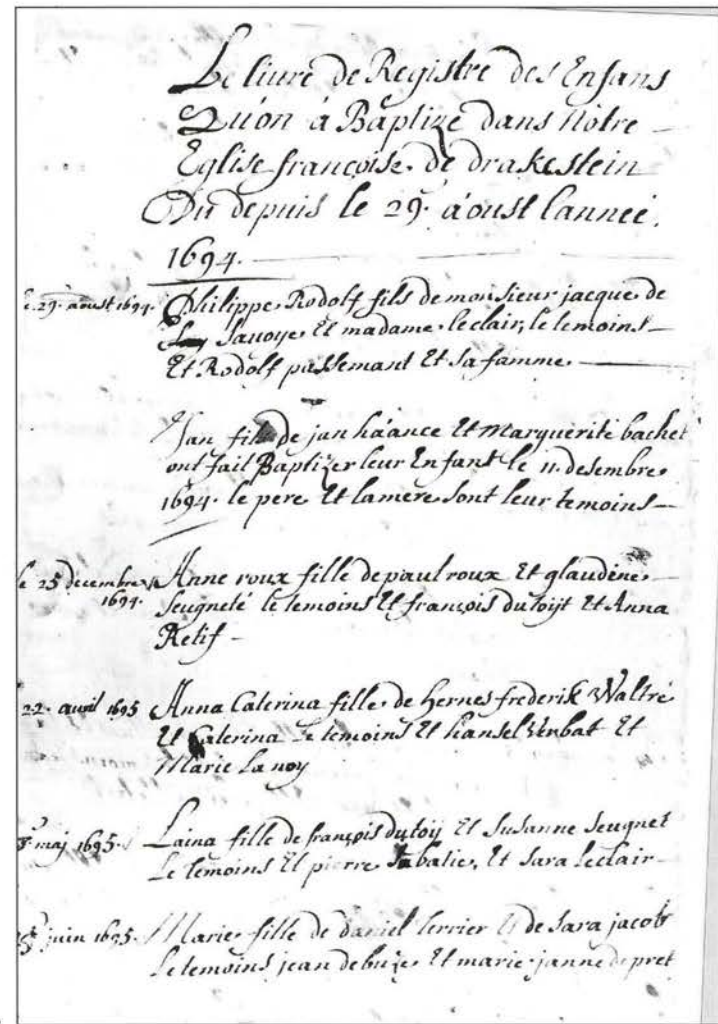 Le livre de Registre des Enfans
Qu'on à Baptizé dans Nôtre
Eglise françoise de drakestein
Du depuis le 29. àoust lanneé.
1694.
le 29. àoust 1694. Philippe Rodolf fils de monsieur jacque de
Savoye Et madame leclair, le temoins
Et Rodolf passemant Et sa famme.
Jan fils de jan hàance Et Marguerite bachet
ont fait Baptizer leur Enfant le 11. desembre
1694. le pere Et lamere sont leur temoins
le 25 decembre Anne roux fille de paul roux Et glaudene
1694. Seugneté le temoins Et françois dutoijt Et Anna
Retif
22. avril 1695 Anna Caterina fille de Hernes frederik Waltré
Et Caterina le temoins Et hansel Verbat Et
Marie Lanoy
maj 1695. Laina fille de françois dutoij Et Susanne Seugnet
Le temoins Et pierre Sabatie, Et Sara leclair
juin 1695. Marie fille de daniel terrier Et de Sara jacob
Le temoins jean debuze Et marie janne de pret